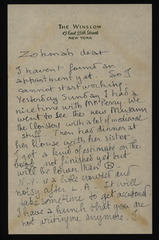 THE WINSLOW
45 East 55th Street
NEW YORK
Zohmah dear
I haven't found an
apointment yet. So I
cannot start working.
Yesterday Sunday I had a
nice time with Mr Perry. We
went to see the new Museum
the Cloisters with a lot of medieval
stuff. Then had dinner at
her house with her sister.
I got a kind of estimate on the
book, not finished yet but
will be lower than
N.Y. is a little crowded and
noisy after L.A. It will
take some time to get accustomed
I have a hunch that you are
not worrying anymore. I